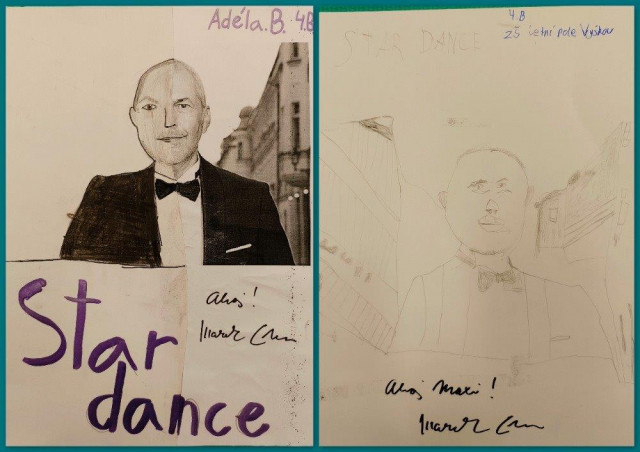 Adéla.B. 4.B
Ahoj!
Marek
Star
dance
4.B
ZŠ Letní pole Vyškov
STAR DANCE
Ahoj Maxi!
Marek